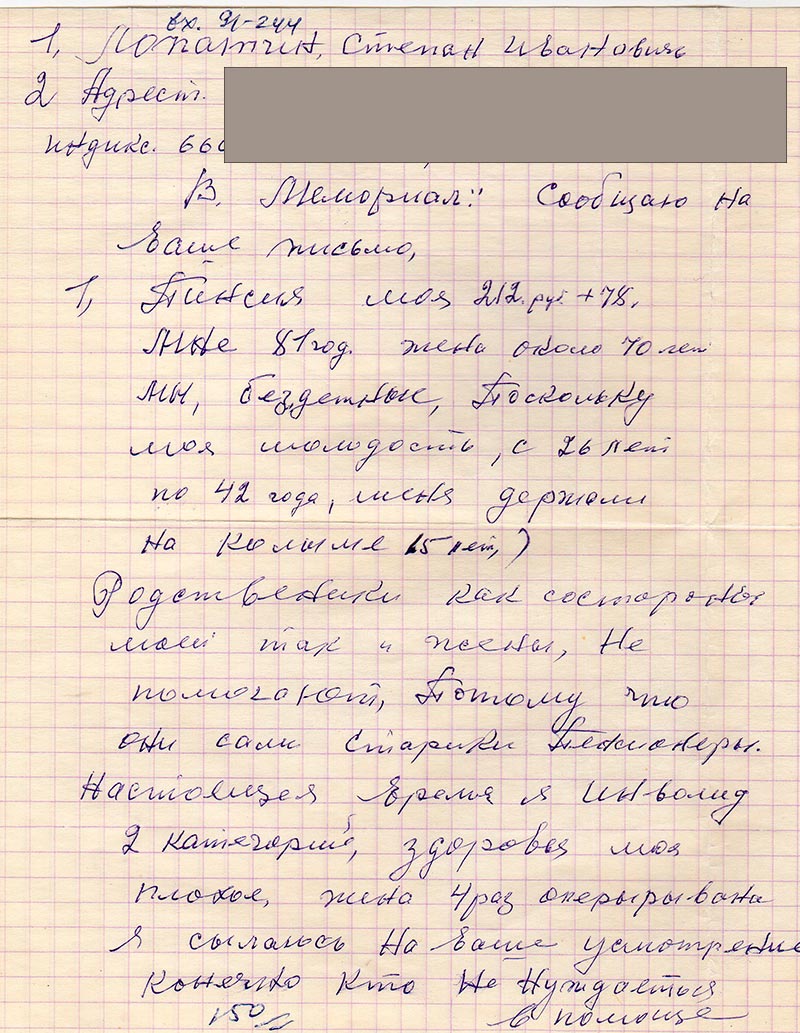 вх. 91-244
1, Лопатин, Степан Иванович
2 Адрест.
индикс. 660
В. Мемориал:" Сообщаю на
Ваше письмо,
1, Пинсия моя 212. руб. +78.
Мне 81 год. жена около 70 лет
мы, бездетные, Поскольку
моя молодость, с 26 лет
по 42 года, меня держали
на колыме 15 лет,)
Родственики как состороны
моей так и жены, не
помогают, Потому что
они сами старики Пенсионеры.
Настоящея время я инвалид
2 категорий, здоровья моя
плохое, жена 4 раз оперырывана
я сылаюсь на Ваше усмотрение
конечно кто не нуждаеться
в помоще
150